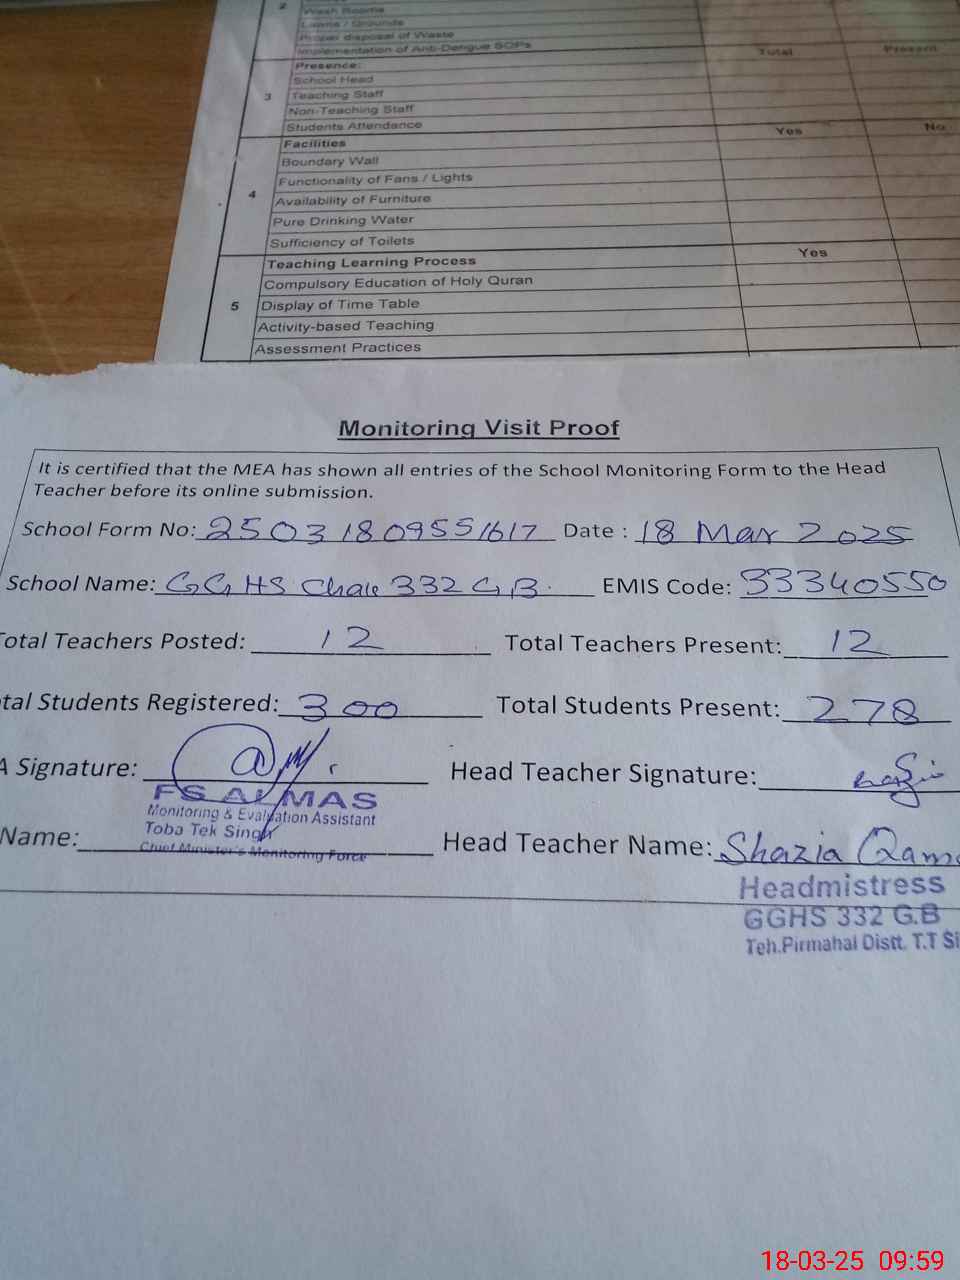 2
Wash Rooms
Lawns / Grounds
Proper disposal of Waste
Implementation of Anti-Dengue SOPs
3
Presence: Total Present
School Head
Teaching Staff
Non-Teaching Staff
Students Attendance
4
Facilities Yes No
Boundary Wall
Functionality of Fans / Lights
Availability of Furniture
Pure Drinking Water
Sufficiency of Toilets
5
Teaching Learning Process Yes
Compulsory Education of Holy Quran
Display of Time Table
Activity-based Teaching
Assessment Practices
Monitoring Visit Proof
It is certified that the MEA has shown all entries of the School Monitoring Form to the Head
Teacher before its online submission.
School Form No: 25031809551617 Date : 18 Mar 2025
School Name: GGHS Chak 332 G.B. EMIS Code: 33340550
Total Teachers Posted: 12 Total Teachers Present: 12
tal Students Registered: 300 Total Students Present: 278
A Signature: Head Teacher Signature:
FS ALMAS
Monitoring & Evaluation Assistant
Toba Tek Singh
Chief Minister's Monitoring Force
Name: Head Teacher Name: Shazia Qama
Headmistress
GGHS 332 G.B
Teh.Pirmahal Distt. T.T Si
18-03-25 09:59